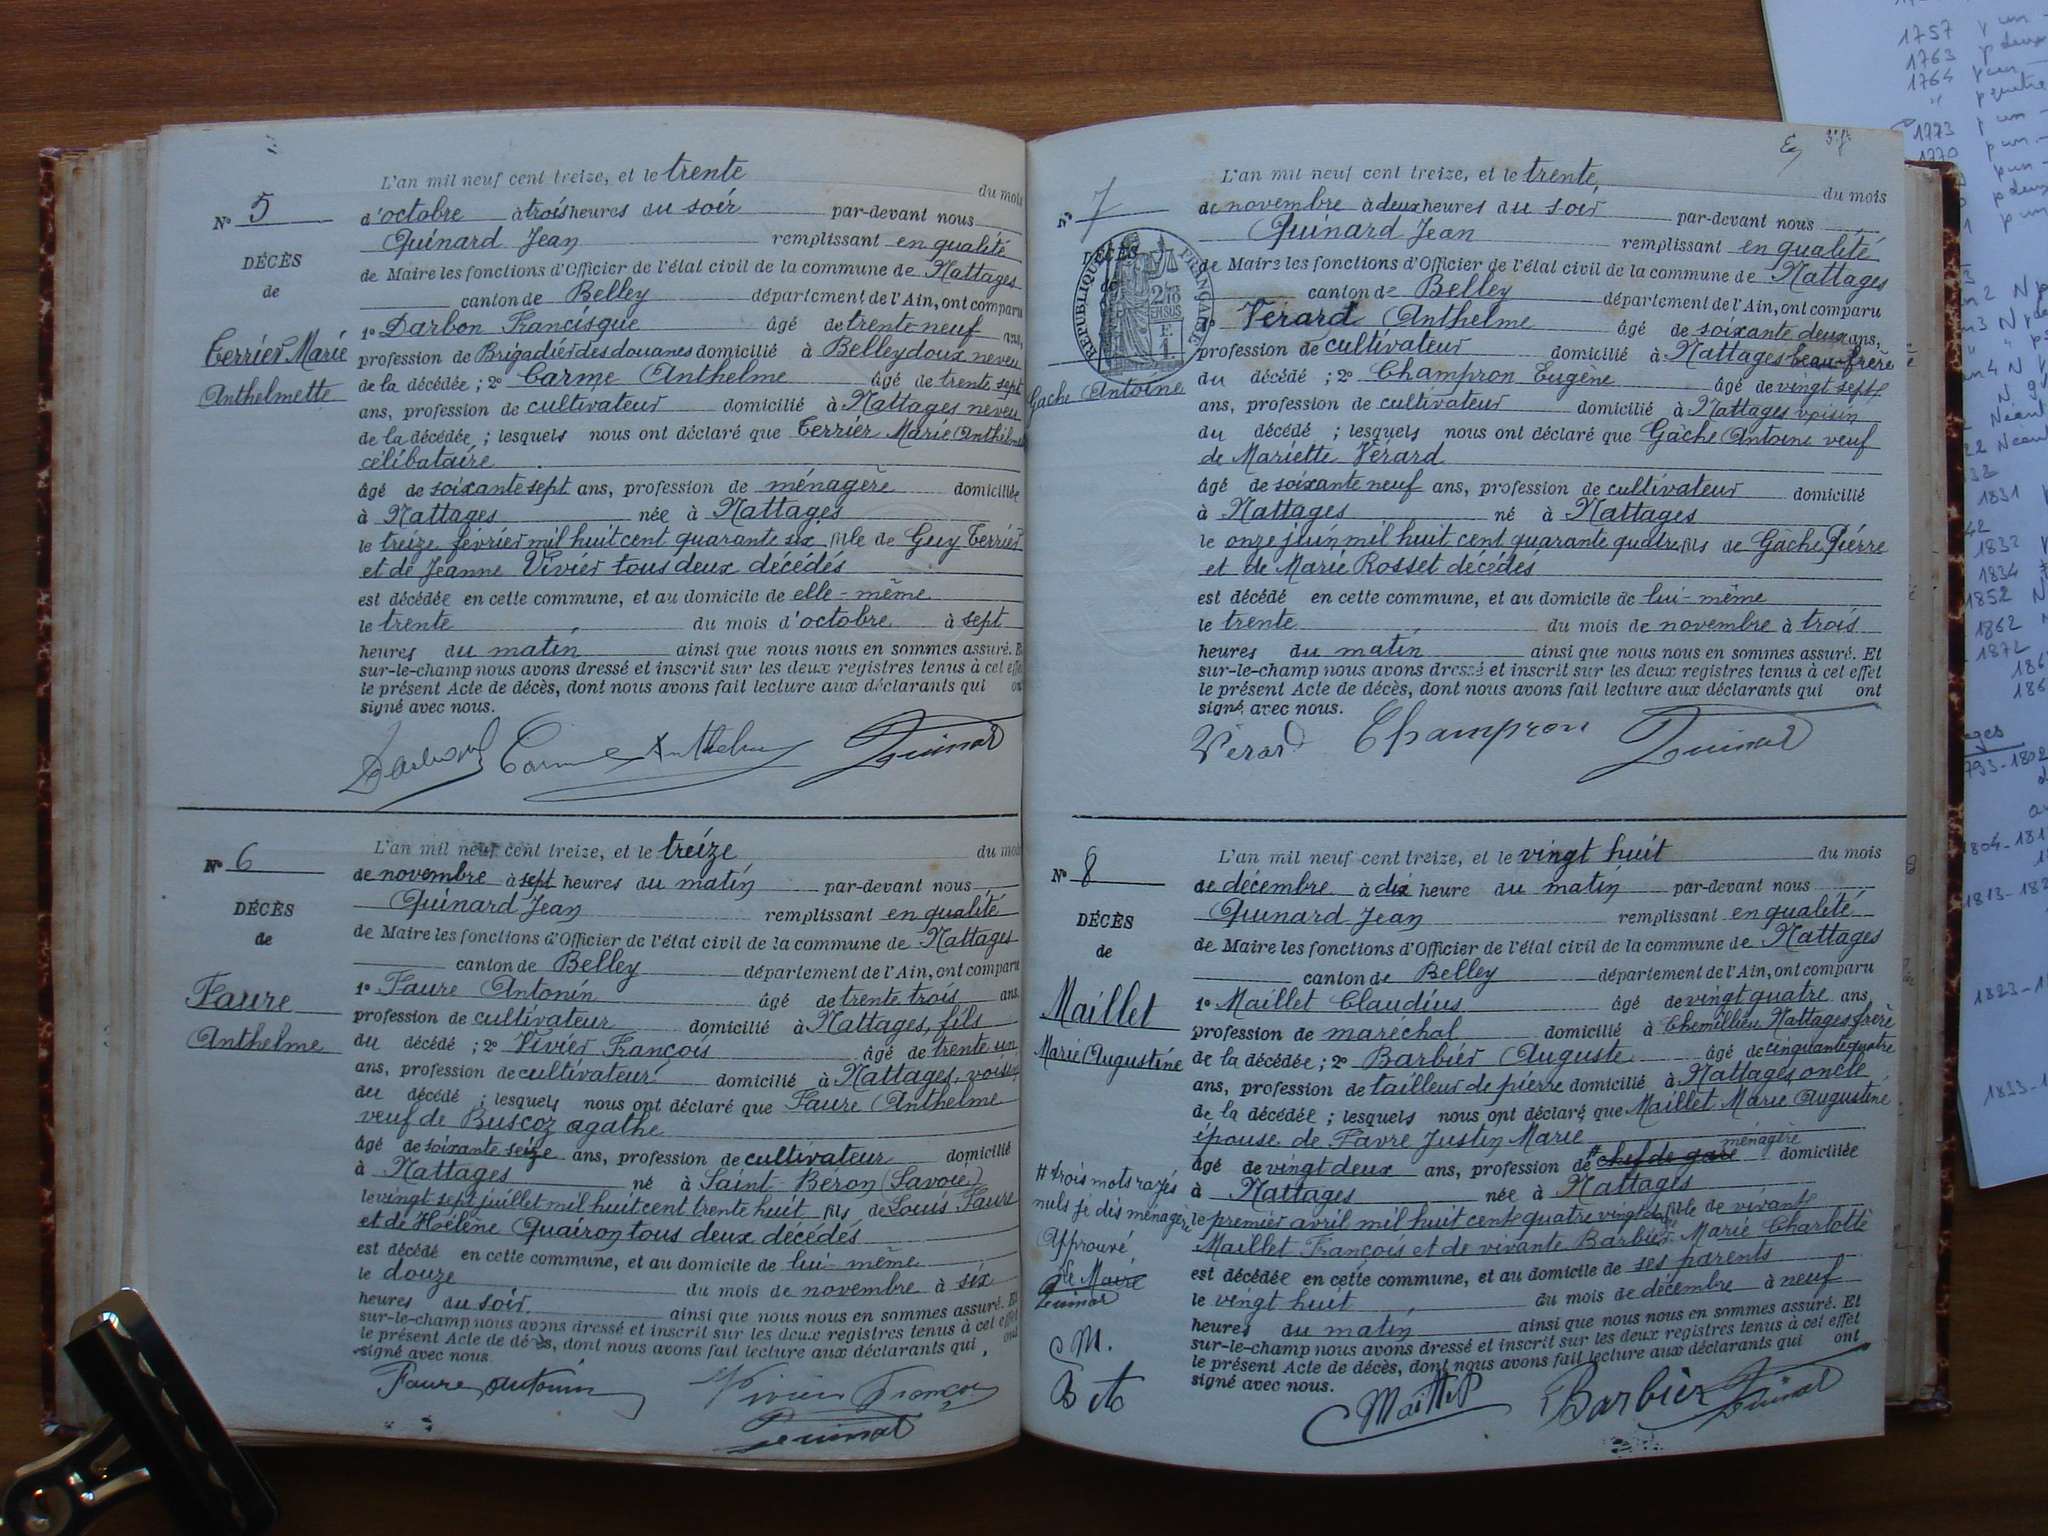 L'an mil neuf cent treize, et le trente du mois
N° 5 d'octobre à trois heures du soir par-devant nous
Quinard Jean remplissant en qualité
DÉCÈS
de Maire les fonctions d'Officier de l'état civil de la commune de Nattages
de
canton de Belley département de l'Ain, ont comparu
1° Darbon Francisque âgé de trente-neuf ans,
Terrier Marie
profession de Brigadier des douanes domicilié à Belleydoux neveu
Anthelmette
de la décédée ; 2° Carme Anthelme âgé de trente sept
ans, profession de cultivateur domicilié à Nattages neveu
de la décédée ; lesquels nous ont déclaré que Terrier Marie Anthelmette
célibataire
âgé de soixante sept ans, profession de ménagère domiciliée
à Nattages née à Nattages
le treize février mil huit cent quarante six, fille de Guy Terrier
et de Jeanne Vivier tous deux décédés
est décédée en cette commune, et au domicile de elle-même
le trente du mois d'octobre à sept
heures du matin ainsi que nous nous en sommes assuré. Et
sur-le-champ nous avons dressé et inscrit sur les deux registres tenus à cet effet
le présent Acte de décès, dont nous avons fait lecture aux déclarants qui ont
signé avec nous.
Darbon Carme Anthelme Quinard
L'an mil neuf cent treize, et le treize du mois
N° 6
de novembre à sept heures du matin par-devant nous
Quinard Jean remplissant en qualité
DÉCÈS
de Maire les fonctions d'Officier de l'état civil de la commune de Nattages
de
canton de Belley département de l'Ain, ont comparu
1° Faure Antonin âgé de trente trois ans
Faure
profession de cultivateur domicilié à Nattages, fils
Anthelme
du décédé ; 2° Vivier François âgé de trente un
ans, profession de cultivateur domicilié à Nattages, voisin
du décédé ; lesquels nous ont déclaré que Faure Anthelme
veuf de Buscoz agathe
âgé de soixante seize ans, profession de cultivateur domicilié
à Nattages né à Saint-Béron (Savoie)
le vingt sept juillet mil huit cent trente huit fils de Louis Faure
et de Hélène Quairon tous deux décédés
est décédé en cette commune, et au domicile de lui-même
le douze du mois de novembre à six
heures du soir ainsi que nous nous en sommes assuré. Et
sur-le-champ nous avons dressé et inscrit sur les deux registres tenus à cet effet
le présent Acte de décès, dont nous avons fait lecture aux déclarants qui ont
signé avec nous.
Faure Antonin Vivier François
Quinard
L'an mil neuf cent treize, et le trente du mois
N° 7
de novembre à deux heures du soir par-devant nous
Quinard Jean remplissant en qualité
DÉCÈS
de Maire les fonctions d'Officier de l'état civil de la commune de Nattages
RÉPUBLIQUE FRANÇAISE
canton de Belley département de l'Ain, ont comparu
1° Vérard Anthelme âgé de soixante deux ans,
profession de cultivateur domicilié à Nattages beau-frère
Gache Antoine
du décédé ; 2° Champron Eugène âgé de vingt sept
ans, profession de cultivateur domicilié à Nattages voisin
du décédé ; lesquels nous ont déclaré que Gâche Antoine veuf
de Mariette Vérard
âgé de soixante neuf ans, profession de cultivateur domicilié
à Nattages né à Nattages
le onze juin mil huit cent quarante quatre fils de Gâche Pierre
et de Marie Rosset décédés
est décédé en cette commune, et au domicile de lui-même
le trente du mois de novembre à trois
heures du matin ainsi que nous nous en sommes assuré. Et
sur-le-champ nous avons dressé et inscrit sur les deux registres tenus à cet effet
le présent Acte de décès, dont nous avons fait lecture aux déclarants qui ont
signé avec nous.
Vérard Champron Quinard
L'an mil neuf cent treize, et le vingt huit du mois
N° 8
de décembre à dix heure du matin par-devant nous
Quinard Jean remplissant en qualité
DÉCÈS
de Maire les fonctions d'Officier de l'état civil de la commune de Nattages
de
canton de Belley département de l'Ain, ont comparu
Maillet
1° Maillet Claudius âgé de vingt quatre ans
profession de marechal domicilié à Chemillieu Nattages frère
Marie Augustine
de la décédée ; 2° Barbier Auguste âgé de cinquante quatre
ans, profession de tailleur de pierre domicilié à Nattages oncle
de la décédée ; lesquels nous ont déclaré que Maillet Marie Augustine
épouse de Favre Justin Marie
ménagère
âgé de vingt deux ans, profession de # chef de gare domiciliée
# trois mots rayés
à Nattages née à Nattages
nuls je dis ménagère
le premier avril mil huit cent quatre vingt fille de vivants
Approuvé
Maillet François et de vivante Barbier Marie Charlotte
est décédée en cette commune, et au domicile de ses parents
Le Maire
Quinard
le vingt huit du mois de décembre à neuf
heures du matin ainsi que nous nous en sommes assuré. Et
C M.
sur-le-champ nous avons dressé et inscrit sur les deux registres tenus à cet effet
le présent Acte de décès, dont nous avons fait lecture aux déclarants qui ont
signé avec nous.
Maillet Barbier Quinard
1757
1763 p deux
1764
1773 p un
1770 p un
1831
1832
1834
1852 N
1862
1872
1793-1802
1833-1